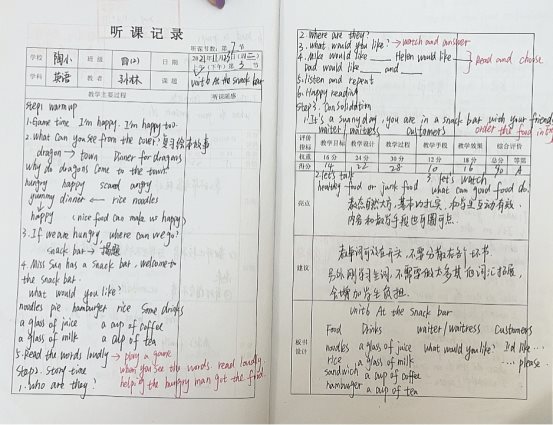 听课记录
听课节数:第7节
学校 陶小 班级 四(2) 日期 2021年11月23日(周二)
(下午)第3节
学科 英语 教者 孙林 课题 Unit6 At the snack bar
教学主要过程 听课随感
Step1 warm up
1. Game time I'm happy. I'm happy too.
2. What can you see from the cover? 复习绘本故事
dragon → town Dinner for dragons
Why do dragons come to the town?
hungry happy scared angry
yummy dinner ← rice noodles
happy (nice food can make us happy)
3. If we are hungry, where can we go?
snack bar → 揭题
4. Miss Sun has a snack bar, welcome to
the snack bar.
what would you like?
noodles pie hamburger rice Some drinks
a glass of juice a cup of coffee
a glass of milk a cup of tea
5. Read the words loudly → play a game
when you see the words. read loudly
Step2. Story time
helping the hungry man got the food.
1. who are they?
2. where are they?
3. what would you like? → watch and answer
4. Mike would like ___ Helen would like ___
Dad would like ___ and ___
Read and choose
5. listen and repeat
6. Happy reading
Step3. Consolidation
1. It's a sunny day, you are in a snack bar with your friends
waiter/waitress customers order the food in Eng
评价指标 教学目标 教学设计 教学过程 教学手段 教学效果 综合评价
权重 16分 24分 30分 12分 18分 总分 等第
得分 14 22 28 10 16 90 A
2. let's talk 3. let's watch
healthy food or junk food what can good food do.
亮点
教态自然大方,基本功扎实,和学生互动有效.
内容和教学手段也有圈可点.
建议
教拓词可放在开头,不需分散在各个环节.
另外刚学习生词,不需要做太多其他词汇拓展,
会增加学生负担.
板书设计
Unit6 At the Snack bar
Food Drinks waiter/waitress Customers
noodles a glass of juice what would you like? I'd like ...
rice a glass of milk ... please.
sandwich a cup of coffee
hamburger a cup of tea